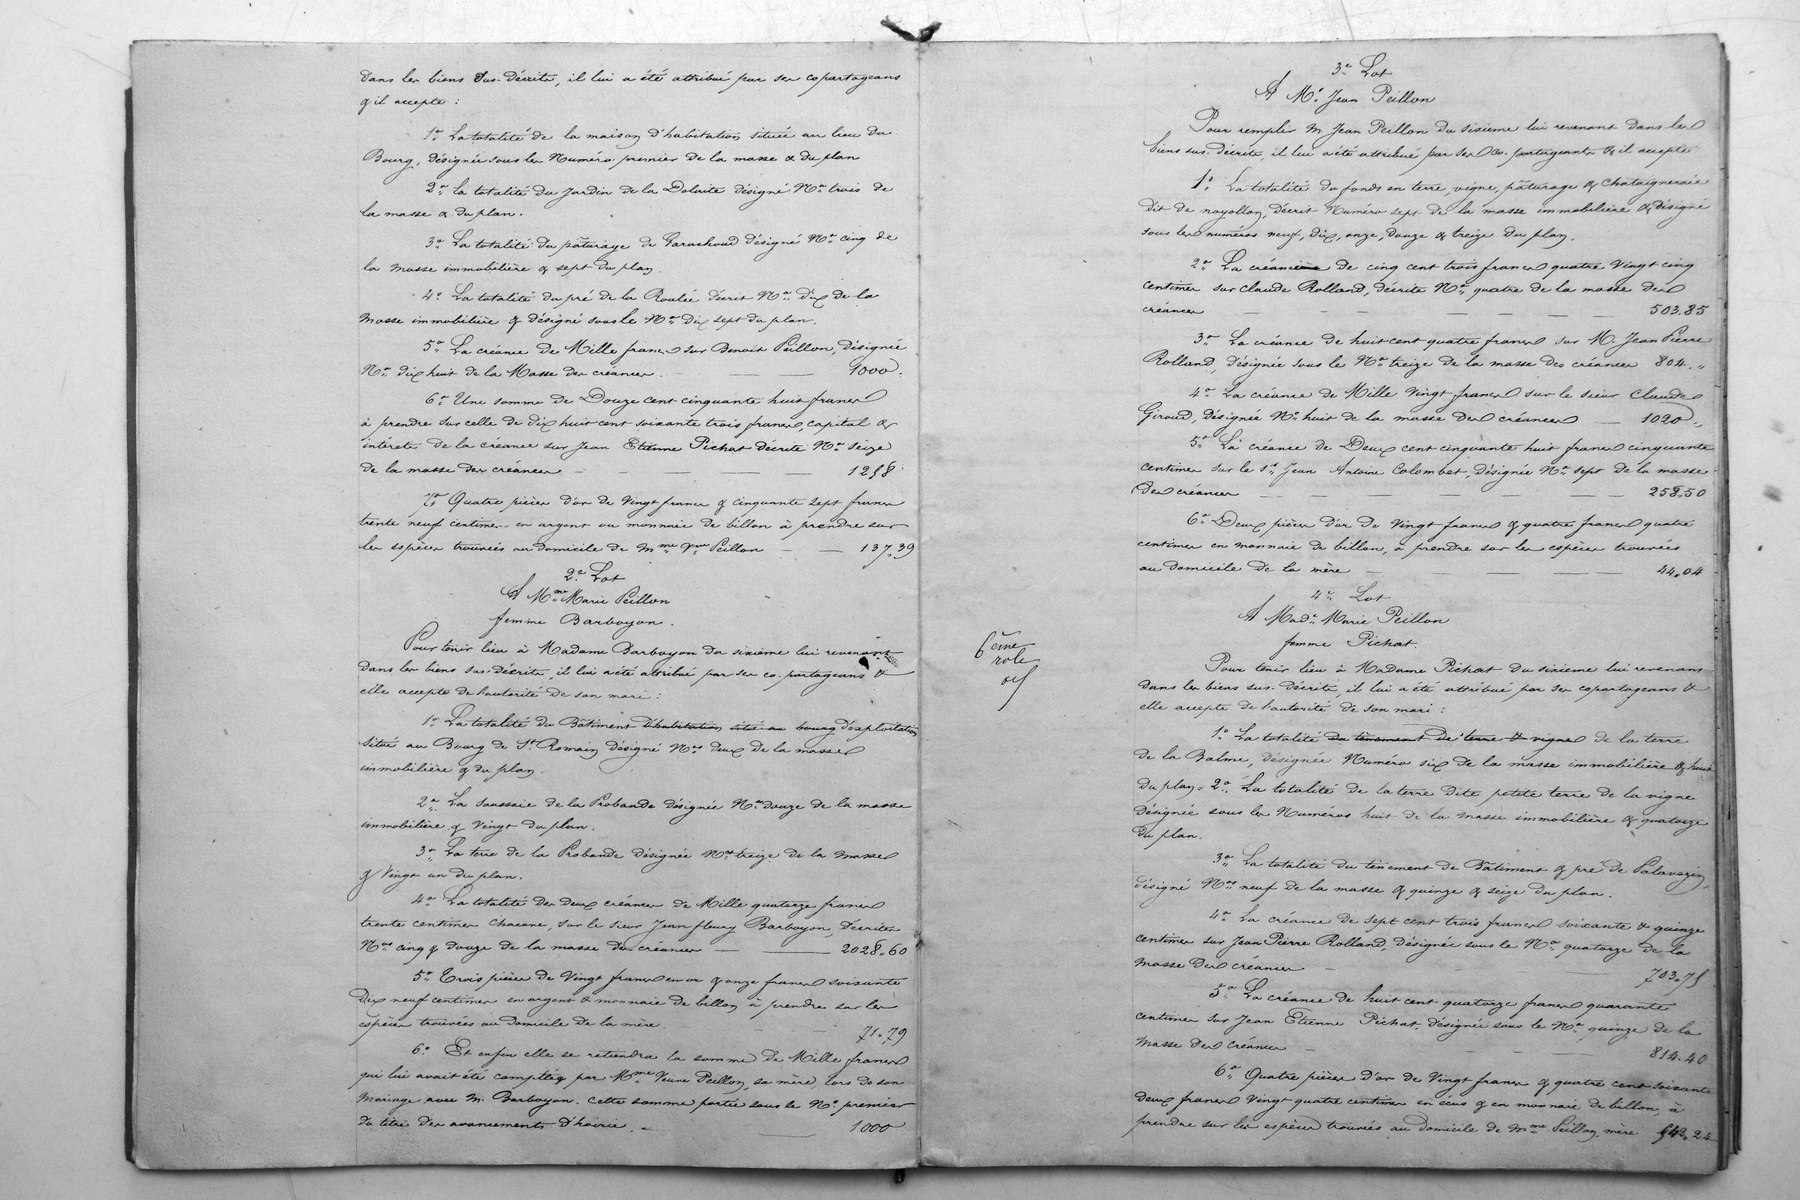 dans les biens sus-décrits, il lui a été attribué par ses copartageans
q'il accepte :
1° La totalité de la maison d'habitation située au lieu du
Bourg, désignée sous les Numéro premier de la masse & du plan
2° La totalité du Jardin de la désigné N° trois de
la masse & du plan.
3° La totalité du pâturage de désigné N° cinq de
la masse immobilière & sept du plan
4° La totalité du pré de la Roulée décrit N° dix de la
Masse immobilière & désigné sous le N° dix sept du plan.
5° La créance de Mille francs sur Benoit Peillon, désignée
N° dix huit de la Masse des créances. — — 1000
6° Une somme de Douze cent cinquante huit francs
à prendre sur celle de dix huit cent soixante trois francs, capital &
intérêts de la créance sur Jean Etienne Pichat décrite N° seize
de la masse des créances — — — — 1258
7° Quatre pièces d'or de Vingt francs & cinquante sept francs
trente neuf centimes en argent ou monnaie de billon à prendre sur
les espèces trouvées au domicile de Mme Vve Peillon — — 137,39
2e Lot
A Mme Marie Peillon
femme Barboyon.
Pour tenir lieu à Madame Barboyon du sixième lui revenant
dans les biens sus-décrits, il lui a été attribué par ses co-partageans &
elle accepte de l'autorité de son mari :
1° La totalité du Bâtiment d'habitation situé au bourg d'exploitation
situé au Bourg de St Romain désigné N° deux de la masse
immobilière & du plan.
2° La saussaie de la Probande désignée N° douze de la masse
immobilière & Vingt du plan.
3° La terre de la Probande désignée N° treize de la masse
& Vingt un du plan.
4° La totalité des deux créances de Mille quatorze francs
trente centimes chacune, sur le sieur Jean fleury Barboyon, décrites
Nos cinq & douze de la masse des créances — 2028,60
5° Trois pièces de Vingt francs en or & onze francs soixante
dix neuf centimes en argent & monnaie de billon à prendre sur les
espèces trouvées au Domicile de la mère. — — 71,79
6° Et enfin elle se retiendra la somme de Mille francs
qui lui avait été comptée par Mme Veuve Peillon, sa mère, lors de son
Mariage avec M. Barboyon. cette somme portée sous le N° premier
du titre des avancements d'hoirie. — — 1000
6ème
role
3e Lot
A Mr Jean Peillon
Pour remplir M Jean Peillon du sixième lui revenant dans les
biens sus-décrits, il lui a été attribué par ses co-partageants & il accepte
1° La totalité du fonds en terre, vigne, pâturage & chataigneraie
dit de nayollon, décrit Numéro sept de la masse immobilière & désigné
sous les numéros neuf, dix, onze, douze & treize du plan.
2° La créance de cinq cent trois francs quatre Vingt cinq
centimes sur Claude Rolland, décrite N° quatre de la masse des
créances — — — — — — — 503,85
3° La créance de huit cent quatre francs sur M. Jean Pierre
Rolland, désignée sous le N° treize de la masse des créances 804 "
4° La créance de Mille Vingt francs sur le sieur Claude
Giroud, désignée N° huit de la masse des créances — 1020 "
5° La créance de Deux cent cinquante huit francs cinquante
centimes sur le sr Jean Antoine Colombet, désignée N° sept de la masse
des créances — — — — — — — 258,50
6° Deux pièces d'or de Vingt francs & quatre francs quatre
centimes en monnaie de billon, à prendre sur les espèces trouvées
au domicile de la mère — — — — — 44,04
4e Lot
A Made Marie Peillon
femme Pichat.
Pour tenir lieu à Madame Pichat du sixième lui revenans
dans les biens sus-décrits, il lui a été attribué par ses copartageans &
elle accepte de l'autorité de son mari :
1° La totalité du tènement de terre & vigne de la terre
de la Balme, désignée Numéro six de la masse immobilière & huit
du plan = 2° La totalité de la terre dite petite terre de la vigne
désignée sous les Numéros huit de la masse immobilière & quatorze
du plan.
3° La totalité du tènement de Bâtiment & pré de Palavezin,
désigné N° neuf de la masse & quinze & seize du plan.
4° La créance de sept cent trois francs soixante & quinze
centimes sur Jean Pierre Rolland, désignée sous le N° quatorze de la
masse des créances — — 703,75
5° La créance de huit cent quatorze francs quarante
centimes sur Jean Etienne Pichat, désignée sous le N° quinze de la
Masse des créances — — — — 814,40
6° Quatre pièces d'or de Vingt francs & quatre cent soixante
deux francs Vingt quatre centimes en écus & en monnaie de billon, à
prendre sur les espèces trouvées au domicile de Mme Peillon mère 542,24